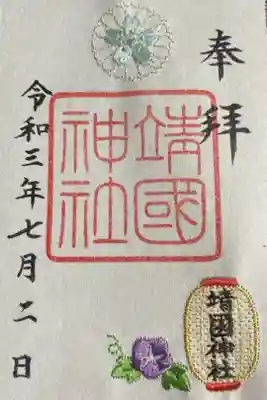 奉拝
靖國神社
靖国神社
令和三年七月二日